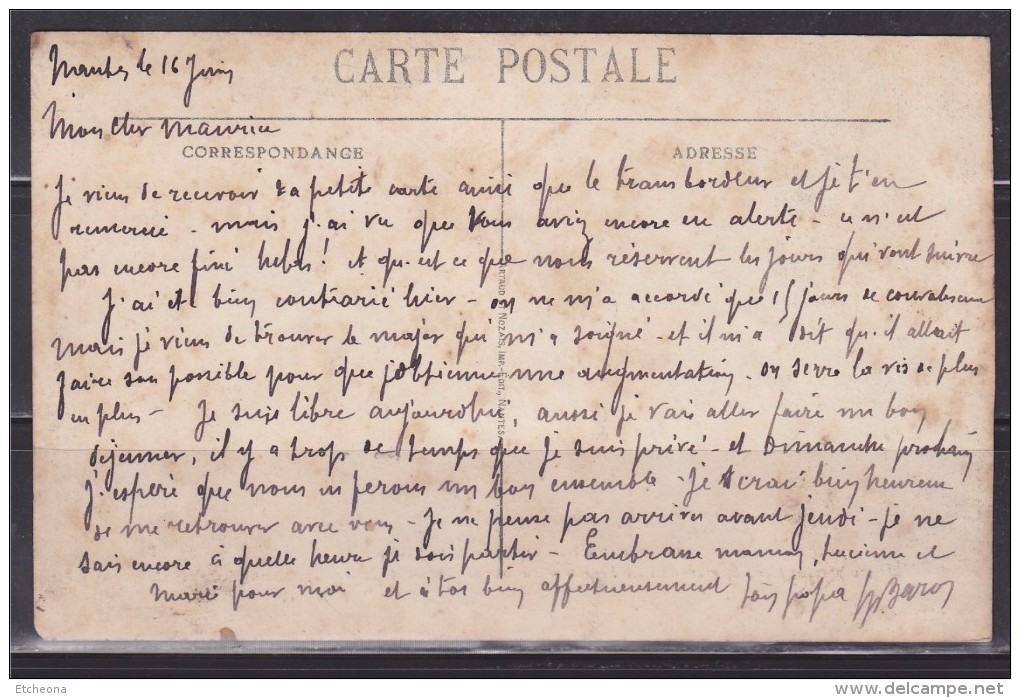 Nantes le 16 Juin
CARTE POSTALE
Mon cher Maurice
CORRESPONDANCE
ADRESSE
Je viens de recevoir ta petite carte ainsi que le transbordeur et je t'en
remercie - mais j'ai vu que vous aviez encore eu alerte - ce n'est
pas encore fini helas! et qu'est ce que nous réservent les jours qui vont suivre
J'ai été bien contrarié hier - on ne m'a accordé que 15 jours de convalescence
mais je viens de trouver le major qui m'a soigné - et il m'a dit qu'il allait
faire son possible pour que j'obtienne une augmentation. on serre la vis de plus
en plus - Je suis libre aujourdhui, aussi je vais aller faire un bon
déjeuner, il y a trop de temps que je suis privé - et dimanche prochain
j'espere que nous en ferons un bon ensemble - Je serai bien heureux
de me retrouver avec vous - Je ne pense pas arriver avant jeudi - je ne
sais encore à quelle heure je dois partir - Embrasse maman, Lucienne et
pour moi et à toi bien affectueusement ton papa Baron
ARTAUD & NOZAIS, IMP.-EDIT., NANTES
Etcheona
www.delcampe.net